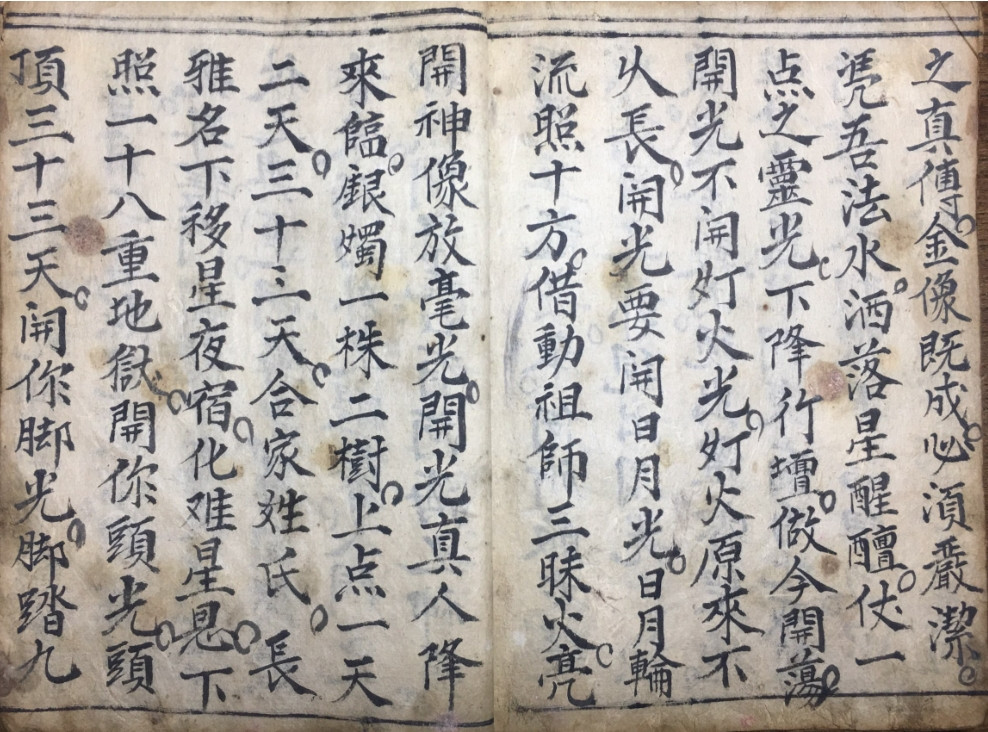 之真傳金像既成必須嚴潔
凭吾法水洒落星醒醴伏一
点之靈光下降行壇做今開蕩
開光不開灯火光灯火原來不
火長開光要開日月光日月輪
流照十方借動祖師三昧火亮
開神像放毫光開光真人降
來臨銀燭一株二樹上点一天
二天三十三天合家姓氏 長
雅名下移星夜宿化难星見下
照一十八重地獄開你頭光頭
頂三十三天開你脚光脚踏九